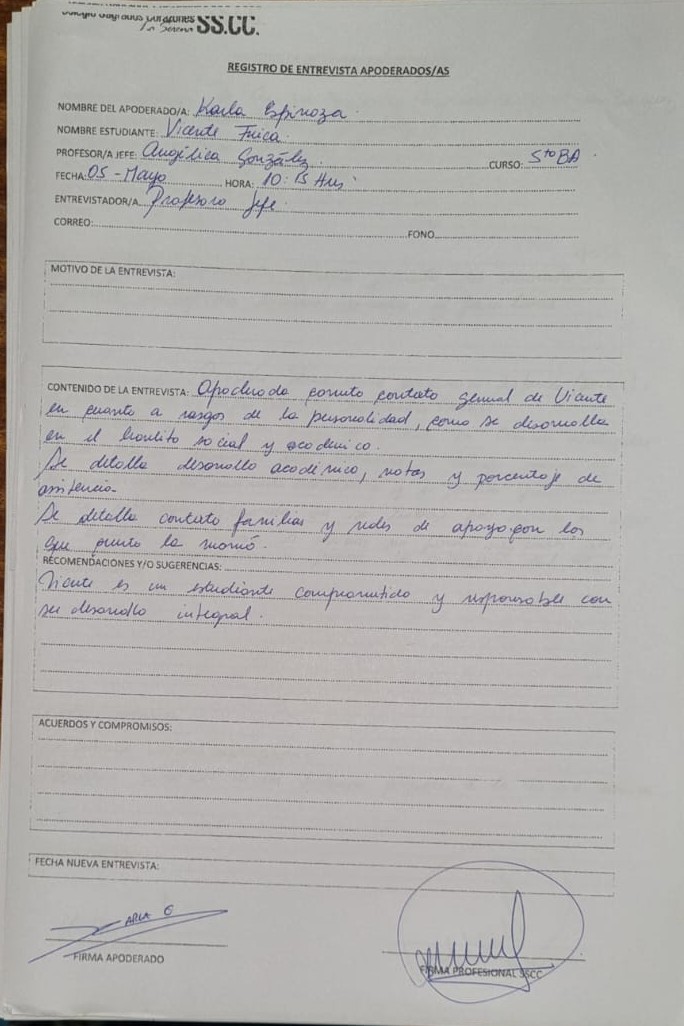 Colegio Sagrados Corazones
La Serena SS.CC.
REGISTRO DE ENTREVISTA APODERADOS/AS
NOMBRE DEL APODERADO/A: Karla Espinoza
NOMBRE ESTUDIANTE: Vicente
PROFESOR/A JEFE: Angélica González CURSO: 5to BA
FECHA: 05 - Mayo HORA: 10:15 Hrs
ENTREVISTADOR/A Profesora Jefe
CORREO: FONO
MOTIVO DE LA ENTREVISTA:
CONTENIDO DE LA ENTREVISTA: Apoderada contexto general de Vicente
en cuanto a rasgos de la personalidad, como se desarrolla
en el ámbito social y académico.
Se detalla desarrollo académico, notas y porcentaje de
asistencia.
Se detalla contexto familiar y redes de apoyo con los
que la mamá.
RECOMENDACIONES Y/O SUGERENCIAS:
Vicente es un estudiante comprometido y responsable con
su desarrollo integral.
ACUERDOS Y COMPROMISOS:
FECHA NUEVA ENTREVISTA:
FIRMA APODERADO
FIRMA PROFESIONAL SSCC